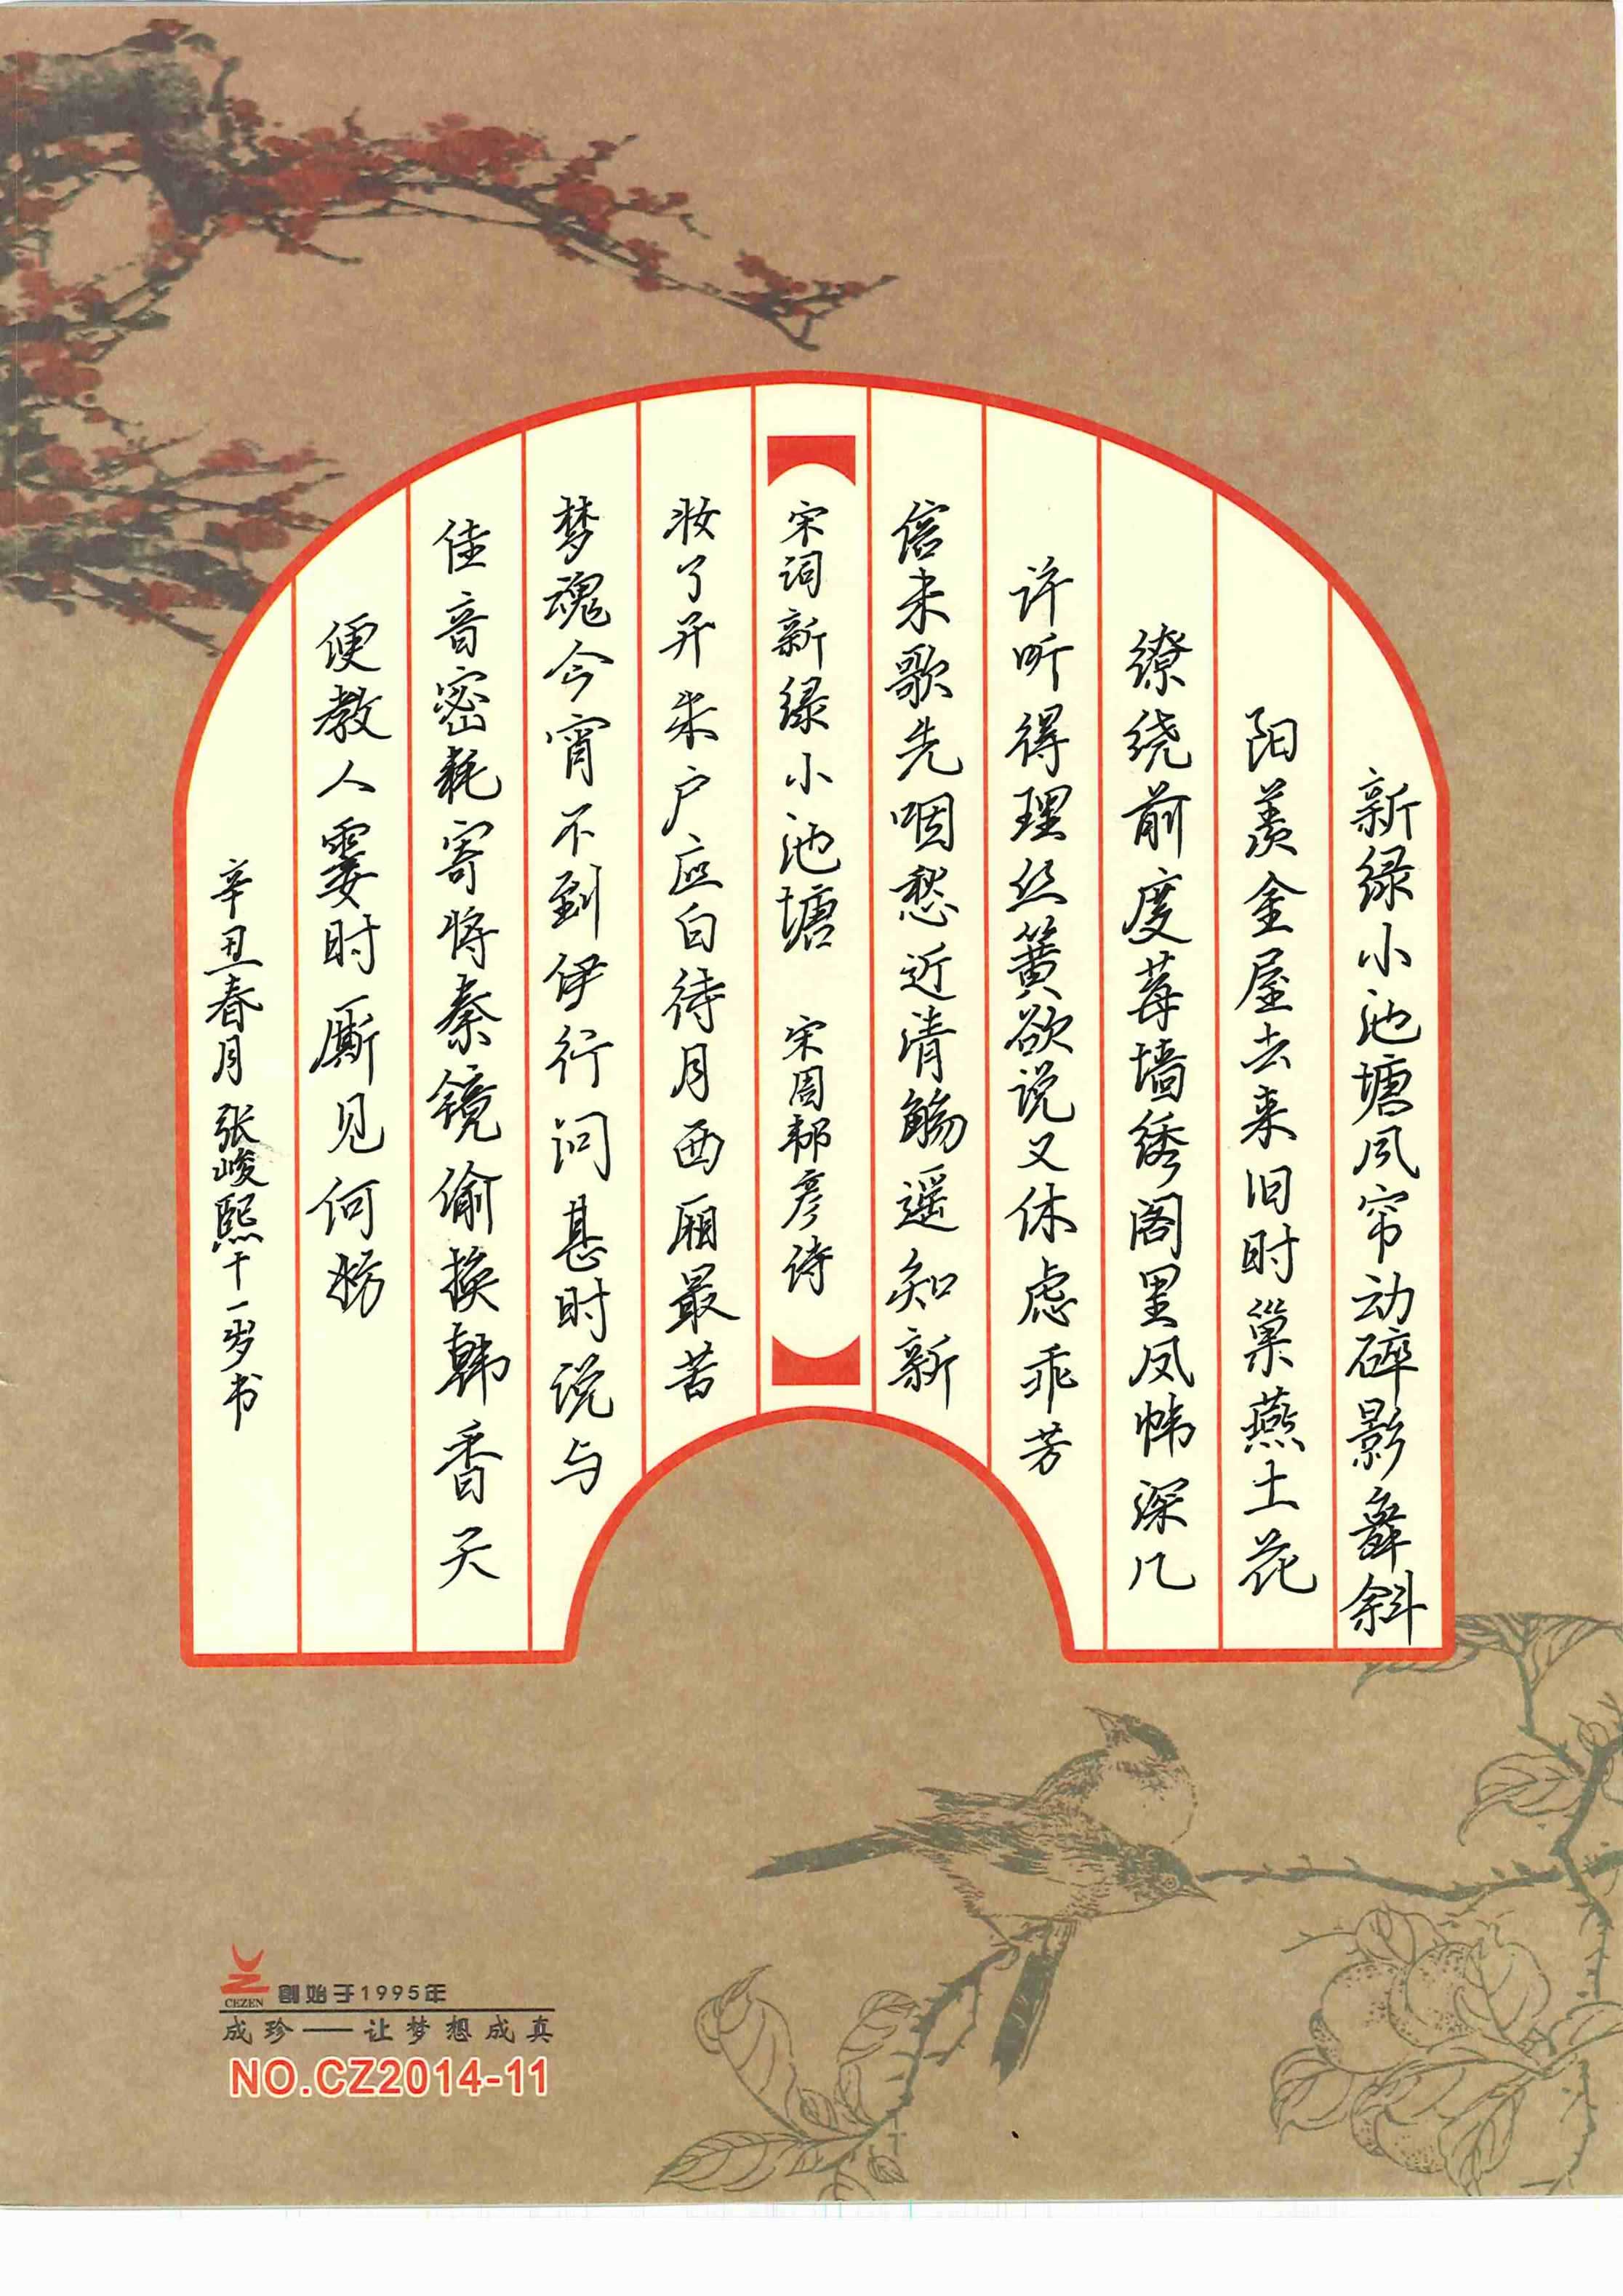 新绿小池塘风帘动碎影舞斜
阳羡金屋去来旧时巢燕土花
缭绕前度莓墙绣阁里凤帏深几
许听得理丝簧欲说又休虑乖芳
信未歌先咽愁近清觞遥知新
宋词新绿小池塘 宋周邦彦诗
妆了开朱户应自待月西厢最苦
梦魂今宵不到伊行问甚时说与
佳音密耗寄将秦镜偷换韩香天
便教人霎时厮见何妨
辛丑春月 张峻熙十一岁书
CEZEN 創始于1995年
成珍——让梦想成真
NO.CZ2014-11